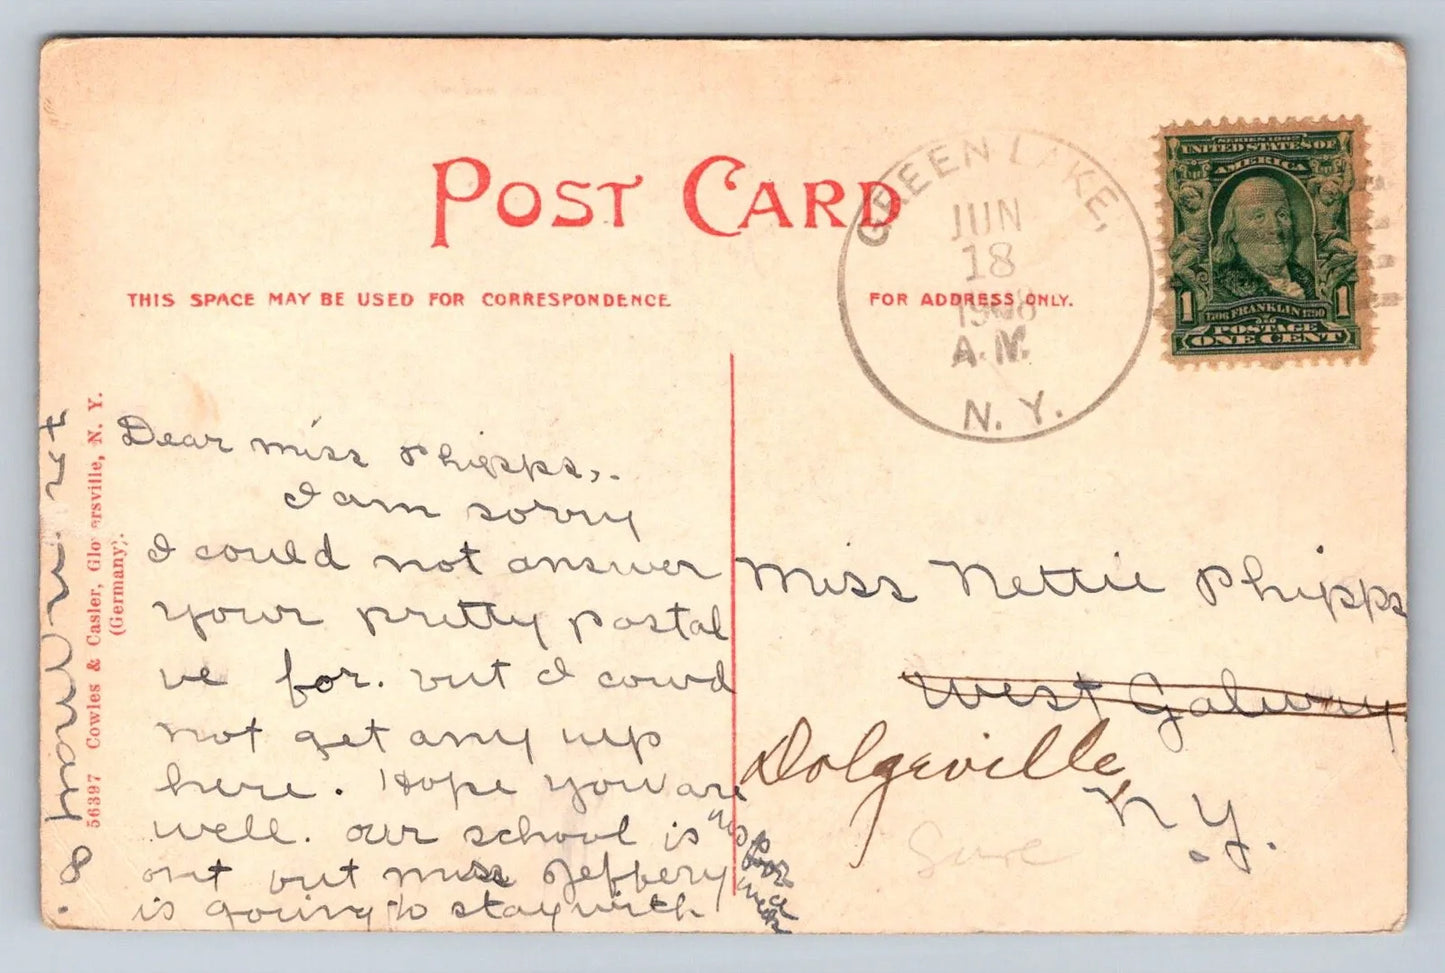 POST CARD
THIS SPACE MAY BE USED FOR CORRESPONDENCE
FOR ADDRESS ONLY.
GREEN LAKE,
JUN
18
1908
A.M.
N. Y.
SERIES 1902
UNITED STATES OF
AMERICA
1 1706 FRANKLIN 1790 1
POSTAGE
ONE CENT
56397 Cowles & Casler, Gloversville, N. Y.
(Germany).
Dear miss Phipps,.
I am sorry
I could not answer
your pretty postal
be for. but I could
not get any up
here. Hope you are
well. our school is
out but miss Jeffery
is going to stay with
us
week
Miss Nettie Phipps
West Galway
Dolgeville
N Y.